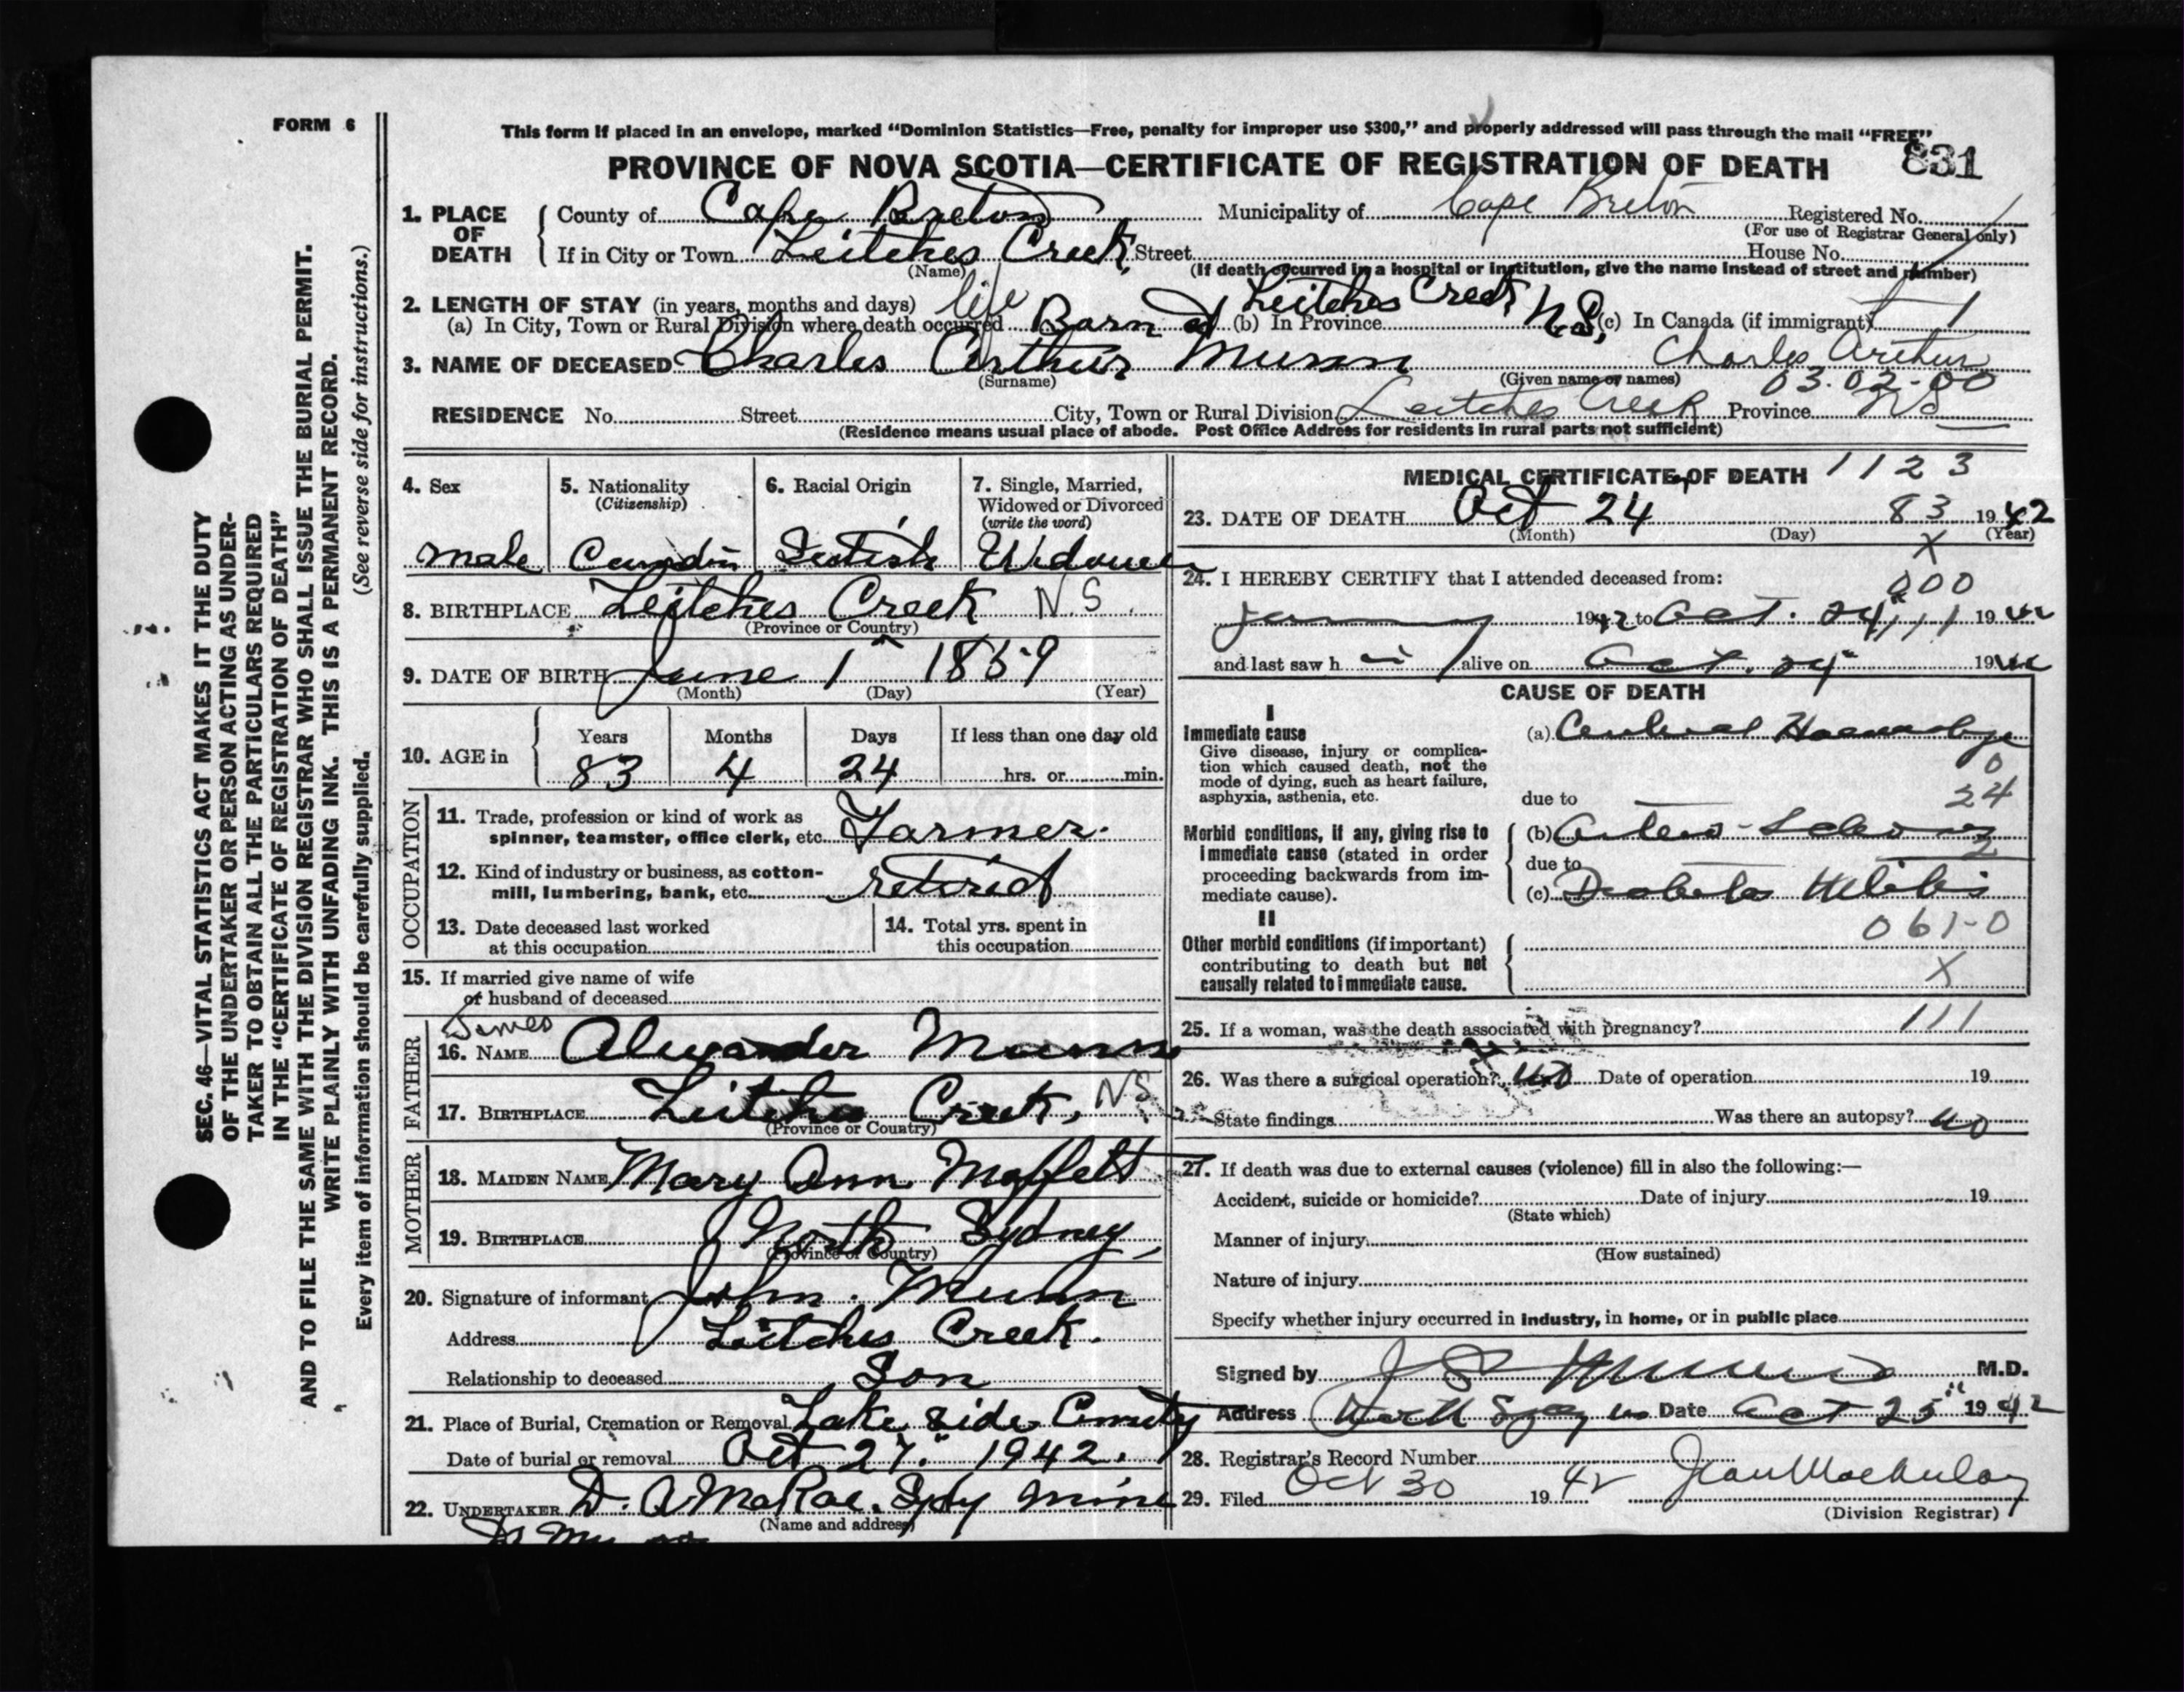 FORM 6
SEC. 46—VITAL STATISTICS ACT MAKES IT THE DUTY
OF THE UNDERTAKER OR PERSON ACTING AS UNDER-
TAKER TO OBTAIN ALL THE PARTICULARS REQUIRED
IN THE "CERTIFICATE OF REGISTRATION OF DEATH"
AND TO FILE THE SAME WITH THE DIVISION REGISTRAR WHO SHALL ISSUE THE BURIAL PERMIT.
WRITE PLAINLY WITH UNFADING INK. THIS IS A PERMANENT RECORD.
Every item of information should be carefully supplied. (See reverse side for instructions.)
This form if placed in an envelope, marked "Dominion Statistics—Free, penalty for improper use $300," and properly addressed will pass through the mail "FREE"
PROVINCE OF NOVA SCOTIA—CERTIFICATE OF REGISTRATION OF DEATH 831
1. PLACE OF DEATH County of Cape Breton Municipality of Cape Breton Registered No.
(For use of Registrar General only)
If in City or Town Leitches Creek, Street House No.
(Name) (If death occurred in a hospital or institution, give the name instead of street and number)
2. LENGTH OF STAY (in years, months and days) life
(a) In City, Town or Rural Division where death occurred Born at (b) In Province Leitches Creek, N.S. (c) In Canada (if immigrant) 1
3. NAME OF DECEASED Charles Arthur Munn Charles Arthur
(Surname) (Given name or names) 03.02-00
RESIDENCE No. Street City, Town or Rural Division Leitches Creek Province NS
(Residence means usual place of abode. Post Office Address for residents in rural parts not sufficient)
4. Sex
male
5. Nationality
(Citizenship)
6. Racial Origin
7. Single, Married,
Widowed or Divorced
(write the word)
Widower
8. BIRTHPLACE Leitches Creek N.S.
(Province or Country)
9. DATE OF BIRTH June 1st 1859
(Month) (Day) (Year)
10. AGE in Years Months Days If less than one day old
83 4 24 hrs. or min.
OCCUPATION
11. Trade, profession or kind of work as
spinner, teamster, office clerk, etc. Farmer.
12. Kind of industry or business, as cotton-
mill, lumbering, bank, etc. retired
13. Date deceased last worked
at this occupation
14. Total yrs. spent in
this occupation
15. If married give name of wife
or husband of deceased
FATHER
James
16. NAME Alexander Munn
17. BIRTHPLACE Leitches Creek, NS
(Province or Country)
MOTHER
18. MAIDEN NAME Mary Ann Moffett
19. BIRTHPLACE North Sydney,
(Province or Country)
20. Signature of informant John Munn
Address Leitches Creek.
Relationship to deceased Son
21. Place of Burial, Cremation or Removal Lake Side
Date of burial or removal Oct 27" 1942.
22. UNDERTAKER D. A McRae. Sydy Mine
(Name and address)
MEDICAL CERTIFICATE OF DEATH 1123
23. DATE OF DEATH Oct 24 83 1942
(Month) (Day) (Year)
X
24. I HEREBY CERTIFY that I attended deceased from:
000
1942 to Oct. 24" 111 19
and last saw h alive on Oct. 24" 19
CAUSE OF DEATH
I
Immediate cause
Give disease, injury or complica-
tion which caused death, not the
mode of dying, such as heart failure,
asphyxia, asthenia, etc.
(a) Cerebral Haemorrhage
0
24
due to
Morbid conditions, if any, giving rise to
immediate cause (stated in order
proceeding backwards from im-
mediate cause).
(b) Arterio-
2
due to
(c) Diabetes
II
061-0
Other morbid conditions (if important)
contributing to death but not
causally related to immediate cause.
X
25. If a woman, was the death associated with pregnancy? 111
26. Was there a surgical operation? no Date of operation 19
State findings Was there an autopsy? no
27. If death was due to external causes (violence) fill in also the following:—
Accident, suicide or homicide? Date of injury 19
(State which)
Manner of injury
(How sustained)
Nature of injury
Specify whether injury occurred in industry, in home, or in public place
Signed by M.D.
Address North Date Oct 25" 1942
28. Registrar's Record Number
29. Filed Oct 30 1942
(Division Registrar)